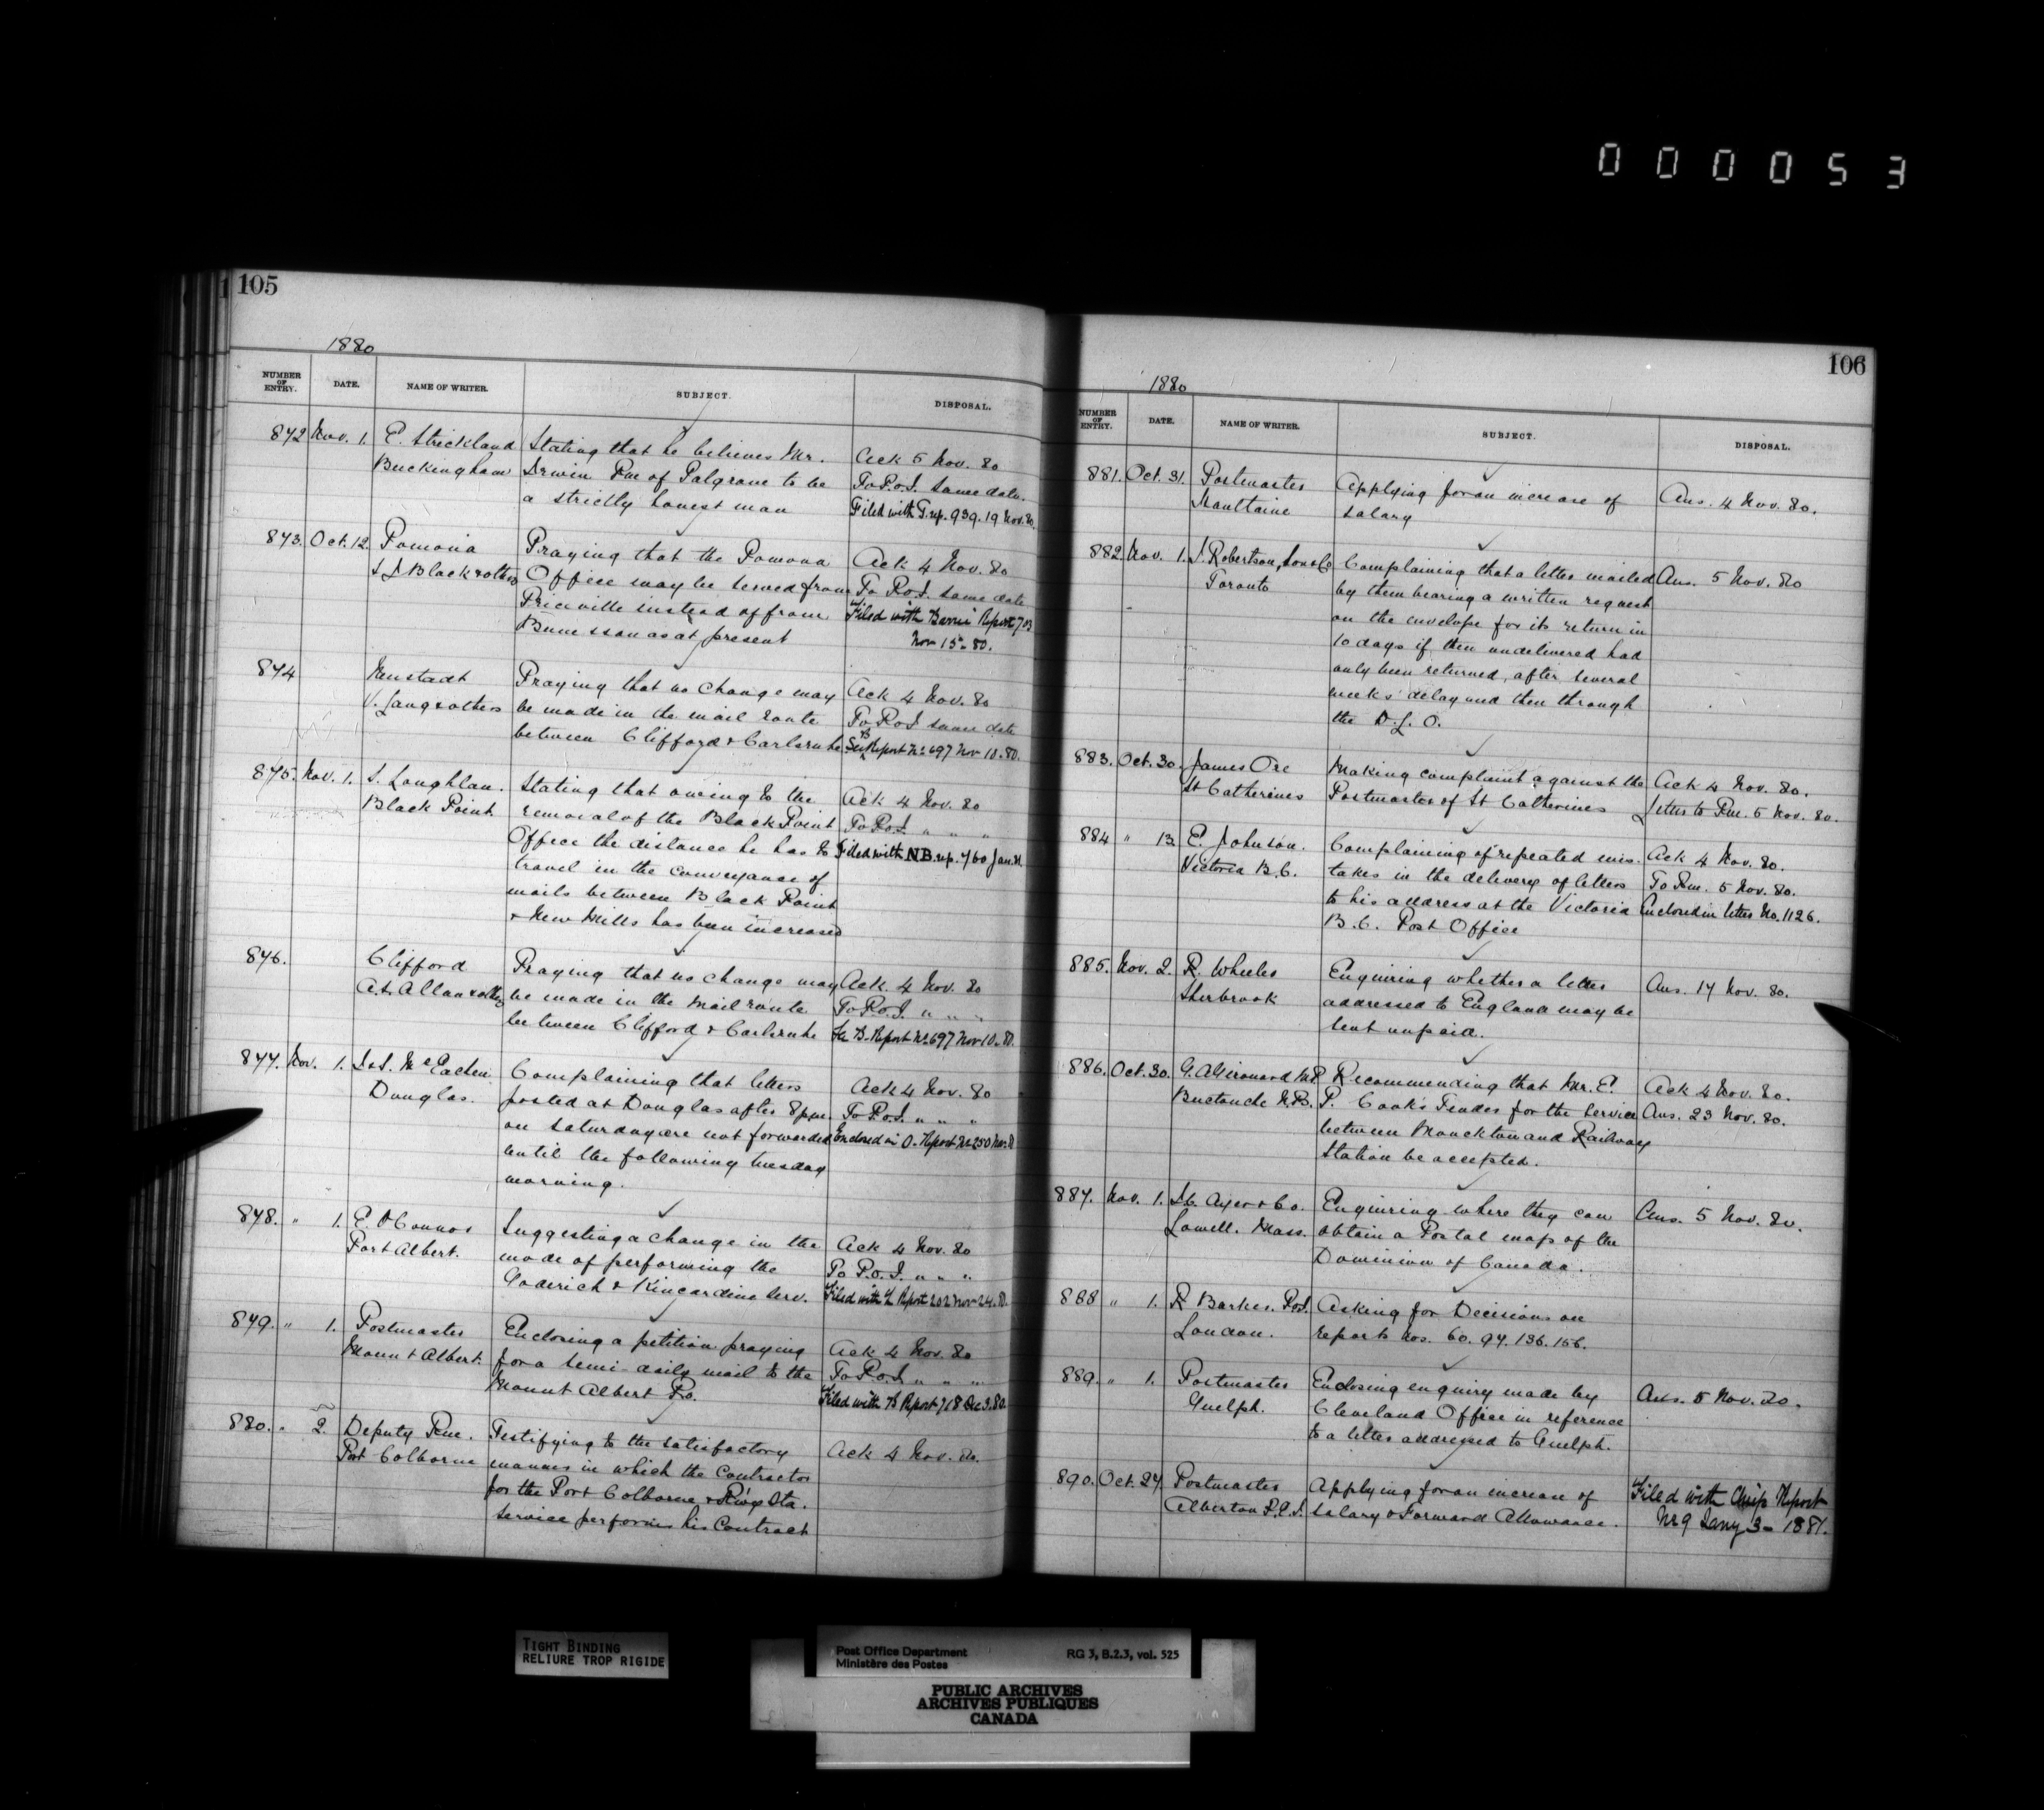 000053
105
1880
NUMBER OF ENTRY. DATE. NAME OF WRITER. SUBJECT. DISPOSAL.
872 Nov. 1. E. Strickland Stating that he believes Mr. Ack 5 Nov. 80
Buckingham Irwin Pm of Palgrave to be To P.O.I. same date.
a strictly honest man Filed with T. rep. 939. 19 Nov. 80.
873. Oct. 12. Pomona Praying that the Pomona Ack 4 Nov. 80
Black & others Office may be served from To P.O.I. same date
Priceville instead of from Filed with Barrie Report 703
Bunessan as at present Nov 15 - 80.
874 Neustadt Praying that no change may Ack 4 Nov. 80
V. Lang & others be made in the mail route To P.O.I. same date
between Clifford & Carlsruhe See B Report No 697 Nov 10. 80.
875. Nov. 1. S. Loughlan. Stating that owing to the Ack 4 Nov. 80
Black Point. removal of the Black Point To P.O.I. " " "
Office the distance he has to Filed with N.B. rep. 760 Jan.
travel in the conveyance of
mails between Black Point
& New Mills has been increased
876. Clifford Praying that no change may Ack. 4 Nov. 80
A.S. Allan & others be made in the Mail route To P.O.I. " " "
between Clifford & Carlsruhe See B. Report No 697 Nov 10. 80.
877. Nov. 1. McEachen Complaining that letters Ack 4 Nov. 80
Douglas. posted at Douglas after 8 pm. To P.O.I. " " "
on Saturday are not forwarded Enclosed in O. Report No 250 Nov.
until the following tuesday
morning.
878. " 1. E. O'Connor Suggesting a change in the Ack 4 Nov. 80
Port Albert. mode of performing the To P.O.I. " " "
Goderich & Kincardine Serv. Filed with L Report 202 Nov 24. 80.
879. " 1. Postmaster Enclosing a petition praying Ack 4 Nov. 80
Mount Albert. for a semi-daily mail to the To P.O.I. " " "
Mount Albert P.O. Filed with B Report 718 Dec 3. 80.
880. " 2. Deputy Pm. Testifying to the satisfactory Ack 4 Nov. 80.
Port Colborne manner in which the Contractor
for the Port Colborne & R'wy Sta.
Service performs his Contract
106
1880
NUMBER OF ENTRY. DATE. NAME OF WRITER. SUBJECT. DISPOSAL.
881. Oct. 31. Postmaster Applying for an increase of Ans. 4 Nov. 80.
Nauttaine salary
882. Nov. 1. J. Robertson, Son & Co Complaining that a letter mailed Ans. 5 Nov. 80
Toronto by them bearing a written request
on the envelope for its return in
10 days if then undelivered had
only been returned, after several
weeks' delay and then through
the D.L.O.
883. Oct. 30. James Ore Making complaint against the Ack 4 Nov. 80.
St Catherines Postmaster of St Catherines Letter to Pm. 5 Nov. 80.
884 " 13. E. Johnson. Complaining of repeated mis- Ack 4 Nov. 80.
Victoria B.C. takes in the delivery of letters To Pm. 5 Nov. 80.
to his address at the Victoria Enclosed in letter No. 1126.
B.C. Post Office
885. Nov. 2. R. Wheeler Enquiring whether a letter Ans. 17 Nov. 80.
Sherbrook addressed to England may be
sent unpaid.
886. Oct. 30. G.A. Girouard M.P. Recommending that Mr. E. Ack 4 Nov. 80.
Buctouche N.B. P. Cook's Tender for the Service Ans. 23 Nov. 80.
between Monckton and Railway
Station be accepted.
887. Nov. 1. J.C. Ayer & Co. Enquiring where they can Ans. 5 Nov. 80.
Lowell. Mass. obtain a Postal map of the
Dominion of Canada.
888 " 1. R Barker. P.O.I. Asking for Decisions on
London. reports Nos. 60. 97. 136. 156.
889. " 1. Postmaster Enclosing enquiry made by Ans. 5 Nov. 80.
Guelph. Cleveland Office in reference
to a letter addressed to Guelph.
890. Oct. 27. Postmaster Applying for an increase of Filed with Report
Alberton P.E.I. salary & Forward Allowance. No 9 Jany 3 - 1881.
TIGHT BINDING
RELIURE TROP RIGIDE
Post Office Department RG 3, B.2.3, vol. 525
Ministère des Postes
PUBLIC ARCHIVES
ARCHIVES PUBLIQUES
CANADA